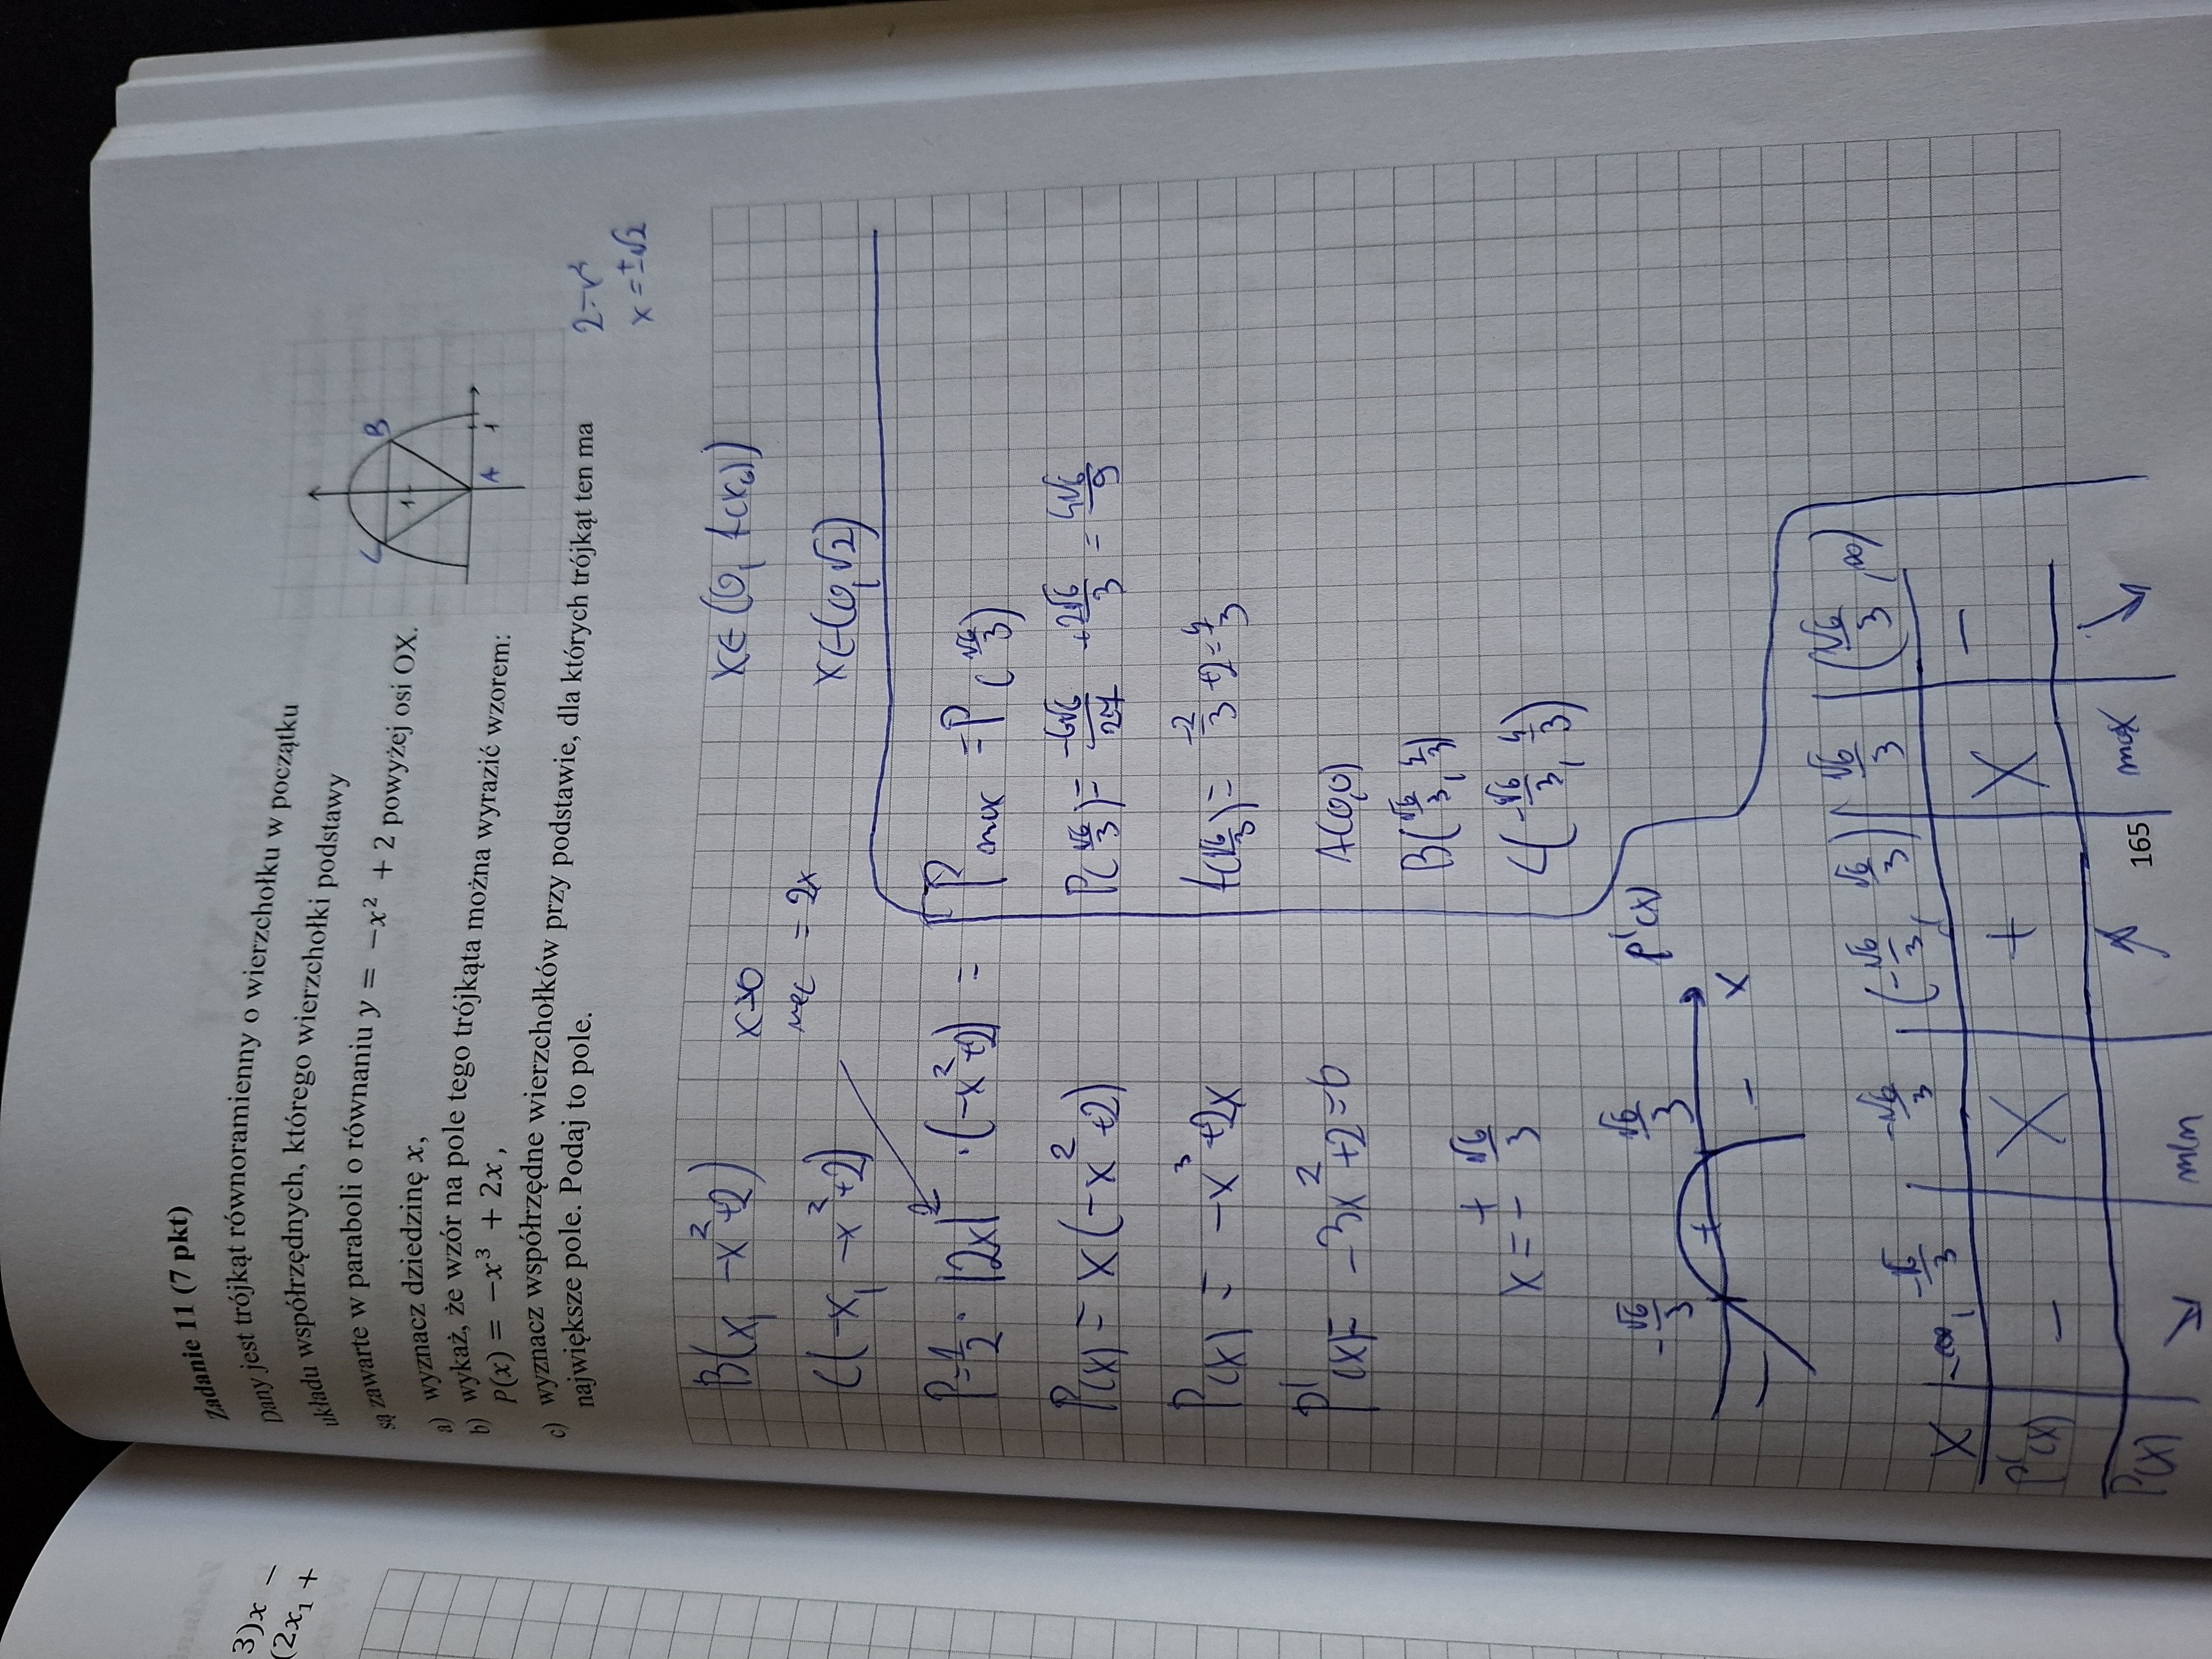 3)x −
(2x₁ +
Zadanie 11 (7 pkt)
Dany jest trójkąt równoramienny o wierzchołku w początku
układu współrzędnych, którego wierzchołki podstawy
są zawarte w paraboli o równaniu y = −x² + 2 powyżej osi OX.
a) wyznacz dziedzinę x,
b) wykaż, że wzór na pole tego trójkąta można wyrazić wzorem:
P(x) = −x³ + 2x ,
c) wyznacz współrzędne wierzchołków przy podstawie, dla których trójkąt ten ma
największe pole. Podaj to pole.
C B
1
A 1
x = ±√2
B(x, −x²+2)
x>0
C(−x, −x²+2)
= 2x
x∈(0,√2)
P=1/2 · |2x| · (−x²+2) =
P(x) = x(−x²+2)
P(x) = −x³+2x
P'(x)= −3x²+2=0
x = ± √6/3
P max = P(√6/3)
P(√6/3)= −6√6/27 + 2√6/3 = 4√6/9
f(√6/3)= −2/3+2=4/3
A(0,0)
B(√6/3, 4/3)
C(−√6/3, 4/3)
P'(x)
−√6/3 √6/3
− + − x
x | −∞, −√6/3 | −√6/3 | (−√6/3, √6/3) | √6/3 | (√6/3, ∞)
P'(x) | − | X | + | X | −
P(x) | ↘ | min | ↗ | max | ↘
165